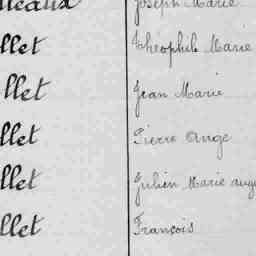 lleaux Joseph Marie
llet Théophile Marie
llet Jean Marie
llet Pierre Ange
llet Julien Marie Ange
llet François